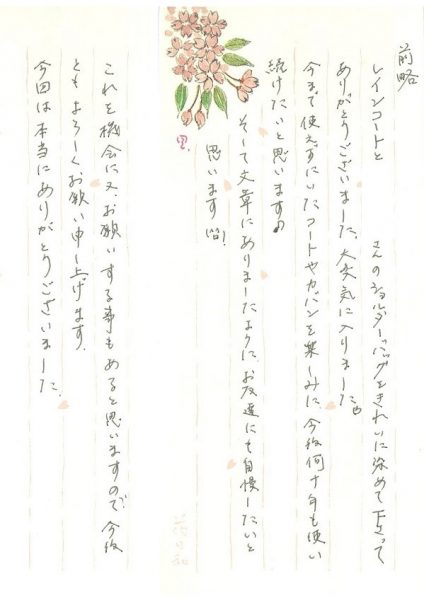 前略
レインコートと　さんのショルダーバッグをきれいに染めて下さって
ありがとうございました。大変気に入りました。
今まで使えずにいたコートやカバンを楽しみに、今後何十年も使い
続けたいと思います。
そして文章にありましたように、お友達にも自慢したいと
思います(笑)!
これを機会に又、お願いする事もあると思いますので、今後
ともよろしくお願い申し上げます。
今回は本当にありがとうございました。
花日和